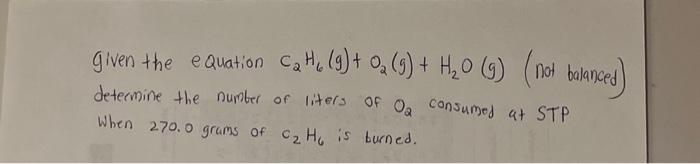 given the equation C₂H₆(g) + O₂(g) + H₂O (g) (not balanced)
determine the number of liters of O₂ consumed at STP
When 270.0 grams of C₂H₆ is burned.